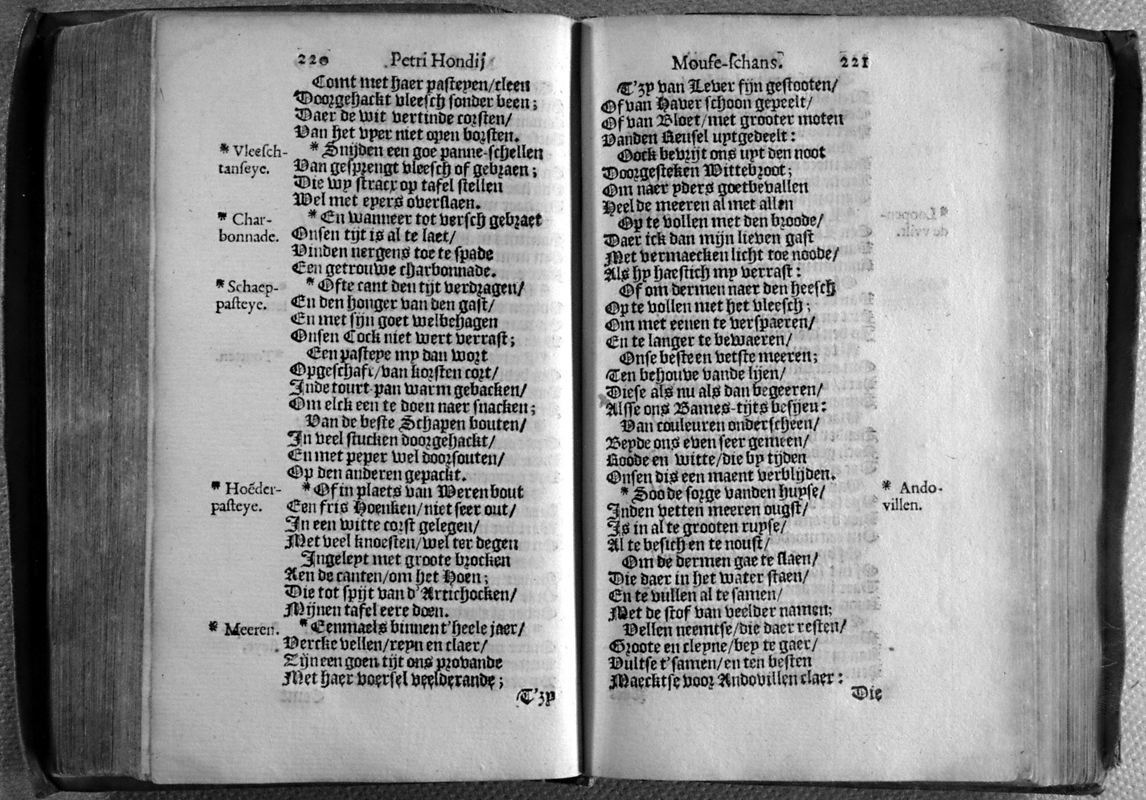 220 Petri Hondij
Comt met haer pasteyen/cleen
Doorgehackt vleesch sonder been;
Daer de wit vertinde corsten/
Van het vyer niet open borsten.
* Vleesch-
tanseye.
* Snijden een goe panne-schellen
Van gesprengt vleesch of gebraen;
Die wy stracx op tafel stellen
Wel met eyers overslaen.
* Char-
bonnade.
* En wanneer tot versch gebraet
Onsen tijt is al te laet/
Vinden nergens toe te spade
Een getrouwe charbonnade.
* Schaep-
pasteye.
* Ofte cant den tijt verdragen/
En den honger van den gast/
En met sijn goet welbehagen
Onsen Cock niet wert verrast;
Een pasteye my dan wort
Opgeschaft/van korsten cort/
Inde tourt-pan warm gebacken/
Om elck een te doen naer snacken;
Van de beste Schapen bouten/
In veel stucken doorgehackt/
En met peper wel doorsouten/
Op den anderen gepackt.
* Hoẽder-
pasteye.
* Of in plaets van Weren bout
Een fris Hoenken/niet seer out/
In een witte corst gelegen/
Met veel knoesten/wel ter degen
Ingeleyt met groote brocken
Aen de canten/om het Hoen;
Die tot spijt van d'Artichocken/
Mijnen tafel eere doen.
* Meeren.
* Eenmaels binnen t'heele jaer/
Vercke vellen/reyn en claer/
Zijn een goen tijt ons provande
Met haer voersel veelderande;
T'zy
Mouse-schans. 221
T'zy van Lever fijn gestooten/
Of van Haver schoon gepeelt/
Of van Bloet/met grooter moten
Vanden Reusel uytgedeelt:
Oock bevrijt ons uyt den noot
Doorgesteken Wittebroot;
Om naer yders goetbevallen
Heel de meeren al met allen
Op te vollen met den broode/
Daer ick dan mijn lieven gast
Met vermaecken licht toe noode/
Als hy haestich my verrast:
Of om dermen naer den heesch
Op te vollen met het vleesch;
Om met eenen te verspaeren/
En te langer te bewaeren/
Onse besteen vetste meeren;
Ten behouve vande lijen/
Diese als nu als dan begeeren/
Alsse ons Bames-tijts besijen:
Van couleuren onderscheen/
Beyde ons even seer gemeen/
Roode en witte/die by tijden
Onsen dis een maent verblijden.
* Ando-
villen.
* Soo de sorge vanden huyse/
Inden vetten meeren ougst/
Is in al te grooten ruyse/
Al te besich en te noust/
Om de dermen gae te slaen/
Die daer in het water staen/
En te vullen al te samen/
Met de stof van veelder namen;
Vellen neemtse/die daer resten/
Groote en cleyne/bey te gaer/
Vultse t'samen/en ten besten
Maecktse voor Andovillen claer:
Die